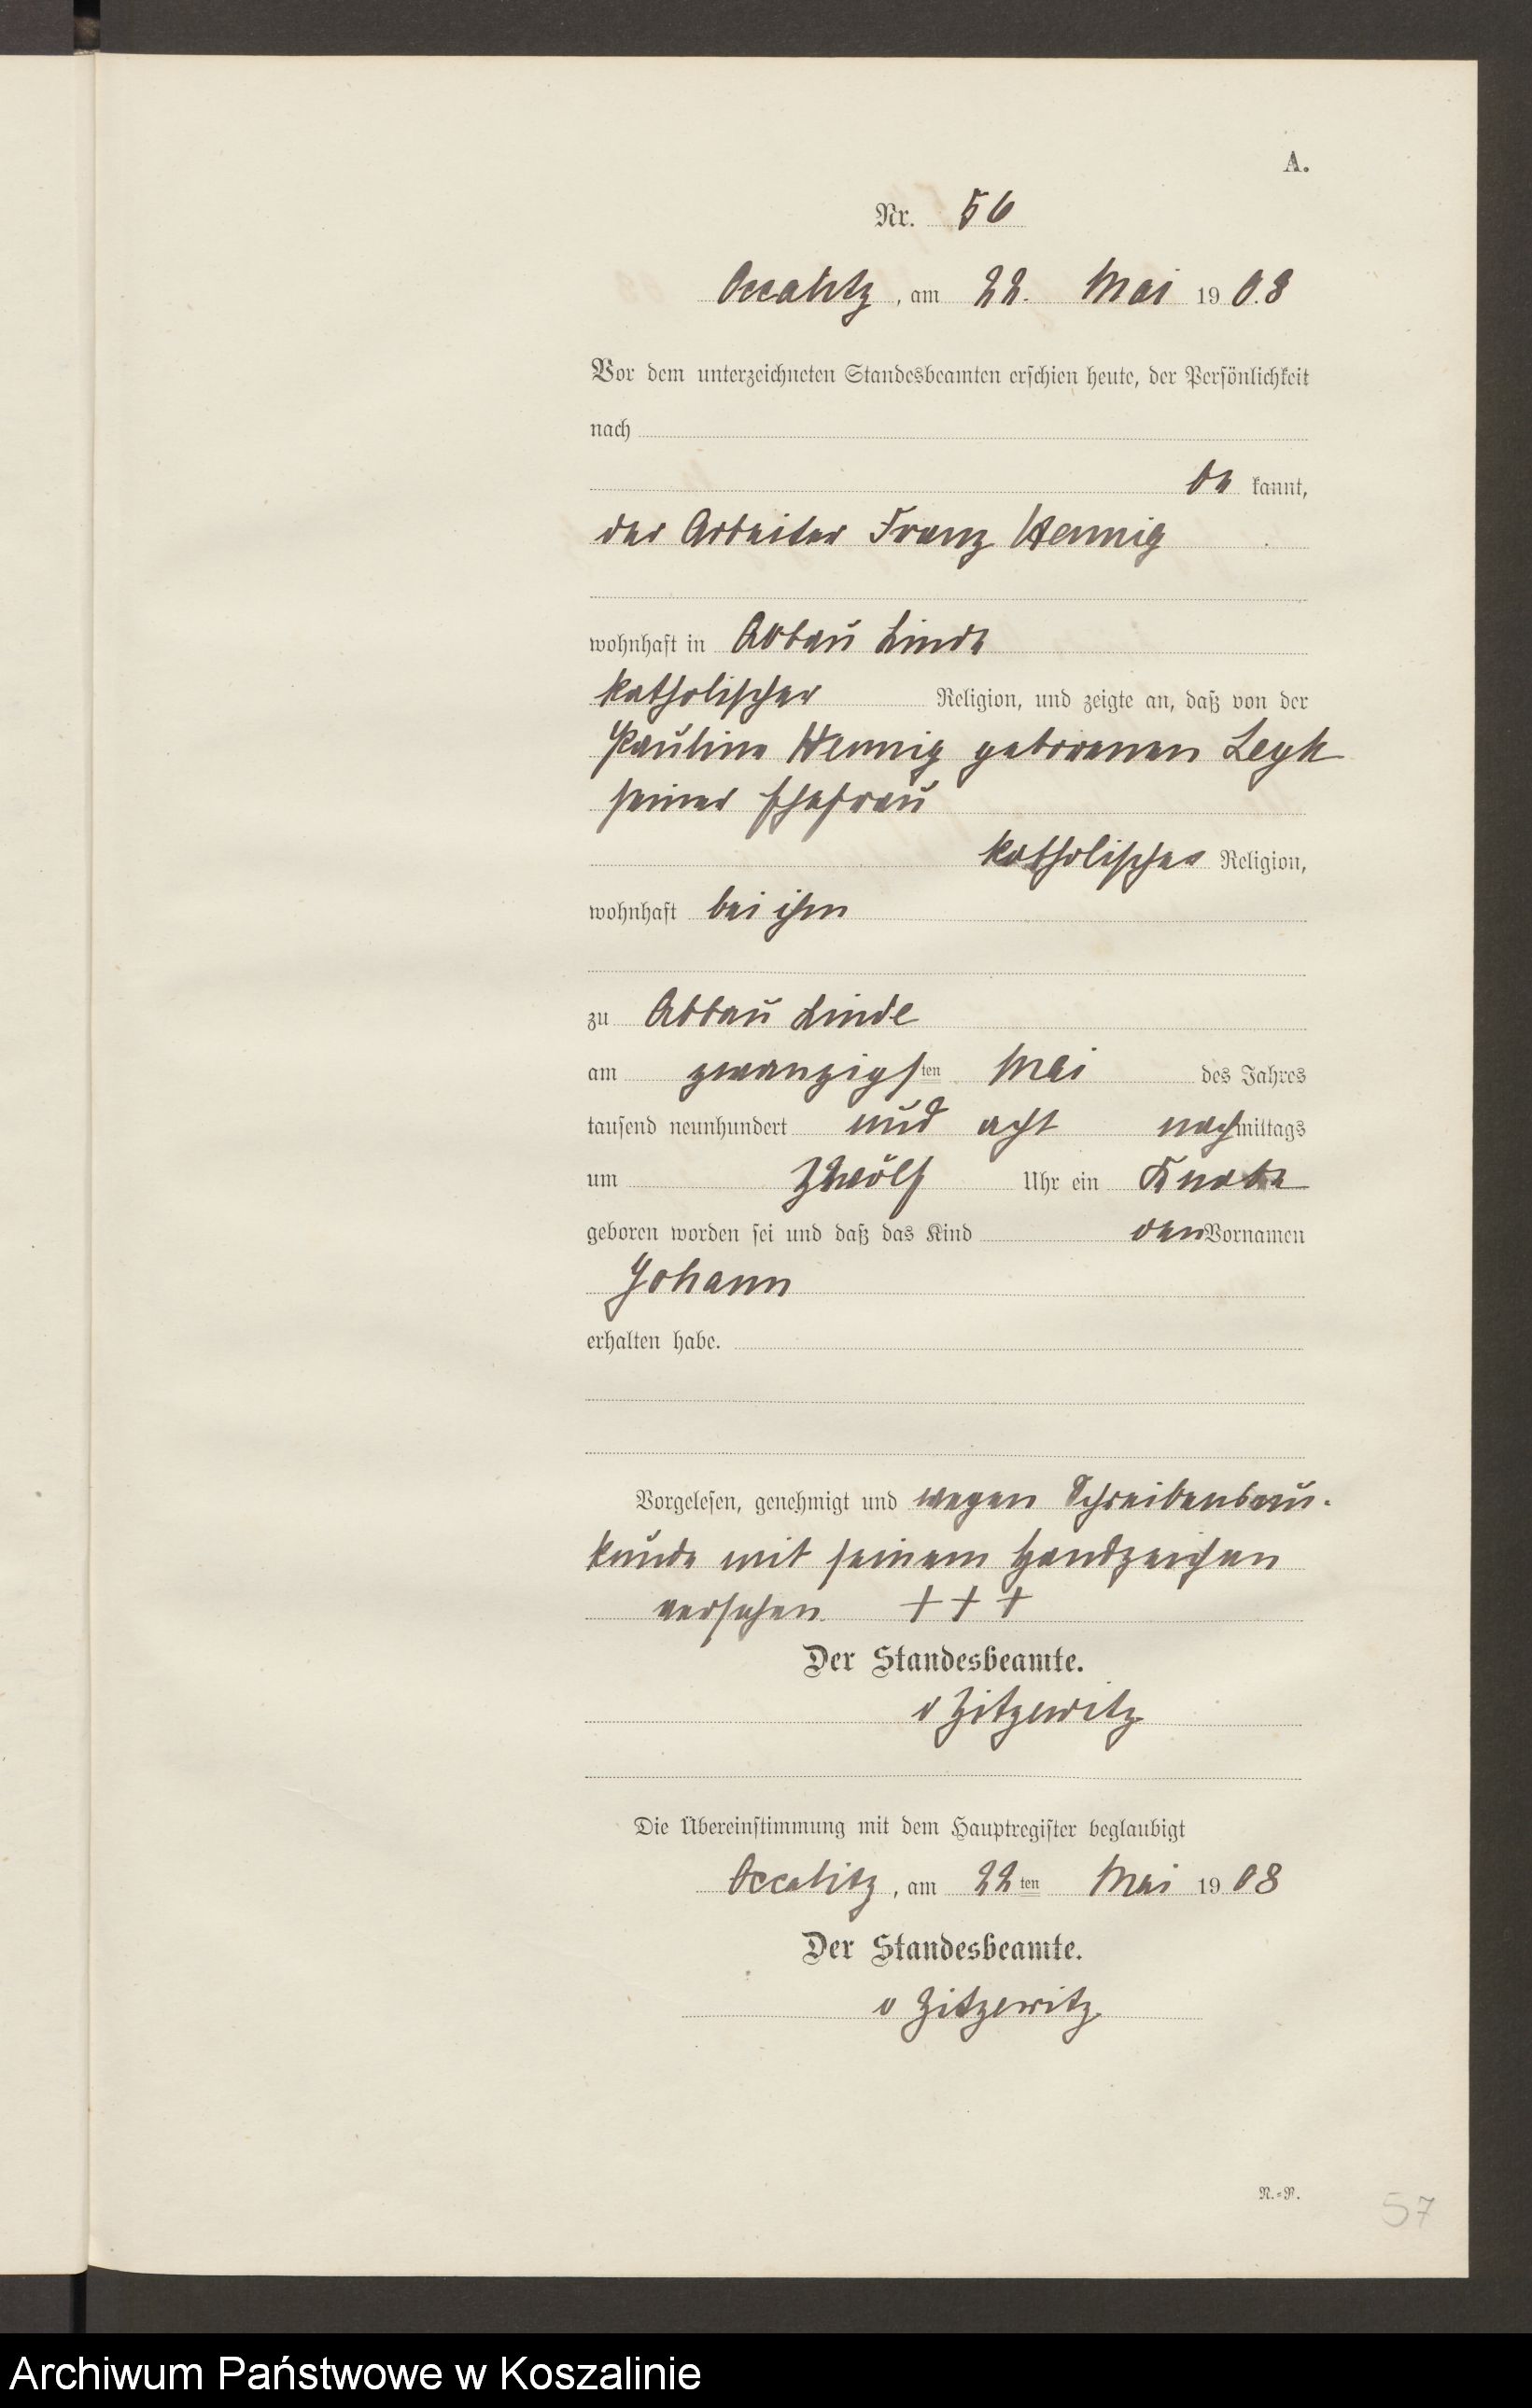 A.
Nr. 56
Occalitz, am 22. Mai 1908
Vor dem unterzeichneten Standesbeamten erschien heute, der Persönlichkeit
nach
be kannt,
der Arbeiter Franz Hennig
wohnhaft in Abbau Linde
katholischer Religion, und zeigte an, daß von der
Pauline Hennig geborenen
seiner Ehefrau
katholischer Religion,
wohnhaft bei ihm
zu Abbau Linde
am zwanzigsten Mai des Jahres
tausend neunhundert und acht nachmittags
um zwölf Uhr ein Knabe
geboren worden sei und daß das Kind den Vornamen
Johann
erhalten habe.
Vorgelesen, genehmigt und wegen
kunde mit seinem Handzeichen
versehen + + +
Der Standesbeamte.
v Zitzewitz
Die Übereinstimmung mit dem Hauptregister beglaubigt
Occalitz, am 22ten Mai 1908
Der Standesbeamte.
v Zitzewitz
N.=R.
57
Archiwum Państwowe w Koszalinie